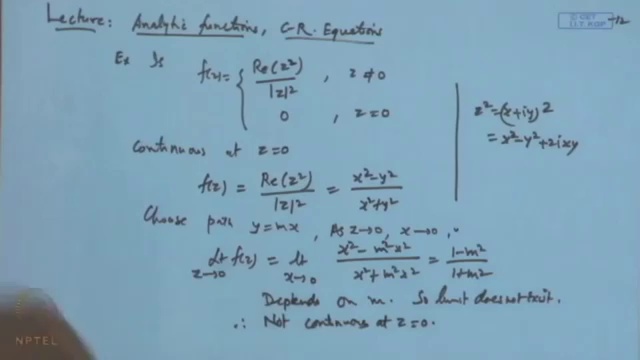 Lecture: Analytic functions, C-R. Equations
Ex Is f(z) = { Re(z²)/|z|² , z ≠ 0
0 , z = 0
continuous at z=0
z² = (x+iy)2
= x²-y²+2ixy
f(z) = Re(z²)/|z|² = x²-y²/x²+y²
Choose path y=mx , As z→0, x→0,
Lt z→0 f(z) = lt x→0 x²-m²x²/x²+m²x² = 1-m²/1+m²
Depends on m. So limit does not exist.
∴ Not continuous at z=0.
NPTEL